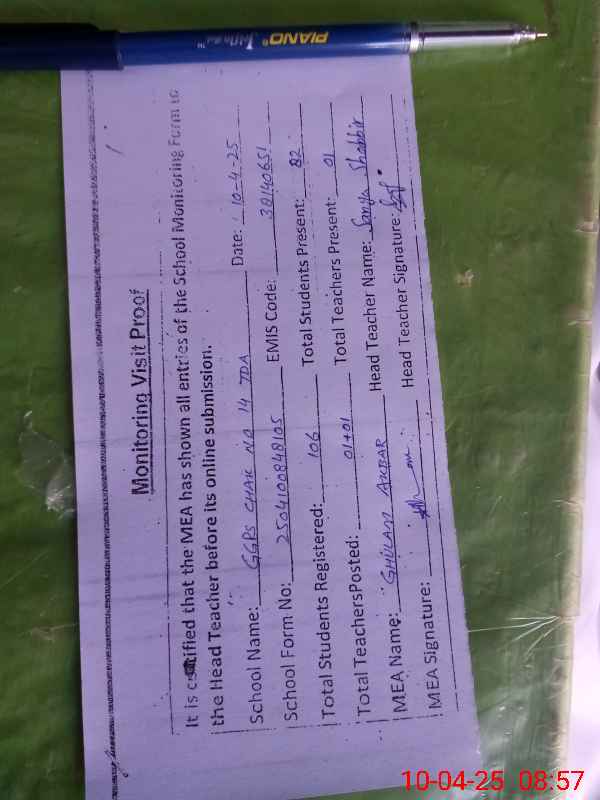 PIANO
Monitoring Visit Proof
It is certified that the MEA has shown all entries of the School Monitoring Form to
the Head Teacher before its online submission.
School Name: GGPS CHAK NO 14 TDA Date: 10-4-25
School Form No: 2504100848105 EMIS Code: 38140651
Total Students Registered: 106 Total Students Present: 82
Total TeachersPosted: 01+01 Total Teachers Present: 01
MEA Name: GHULAM AKBAR Head Teacher Name: Sanya Shabbir
MEA Signature: Head Teacher Signature:
10-04-25 08:57